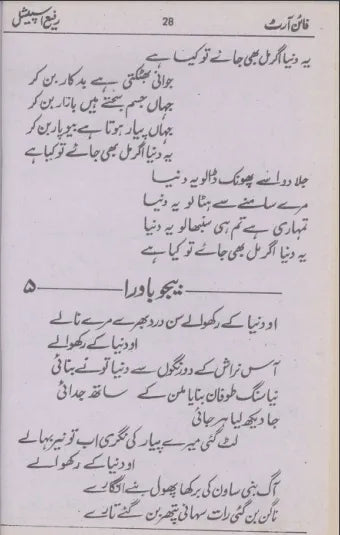 فائن آرٹ 28 رفیع اسپیشل
یہ دنیا اگر مل بھی جائے تو کیا ہے
جوانی بھٹکتی ہے بدکار بن کر
جہاں جسم سجتے ہیں بازار بن کر
جہاں پیار ہوتا ہے بیوپار بن کر
یہ دنیا اگر مل بھی جائے تو کیا ہے
جلا دو اسے پھونک ڈالو یہ دنیا
مرے سامنے سے ہٹا لو یہ دنیا
تمہاری ہے تم ہی سنبھالو یہ دنیا
یہ دنیا اگر مل بھی جائے تو کیا ہے
بیجو باورا ۵
او دنیا کے رکھوالے سن درد بھرے مرے نالے
او دنیا کے رکھوالے
آس نراش کے دو رنگوں سے دنیا تو نے بنائی
نیا سنگ طوفان بنایا ملن کے ساتھ جدائی
جا دیکھ لیا ہرجائی
لٹ گئی میرے پیار کی نگری اب تو نیر بہا لے
او دنیا کے رکھوالے
آگ بنی ساون کی برکھا پھول بنے انگارے
ناگن بن گئی رات سہانی پتھر بن گئے تارے